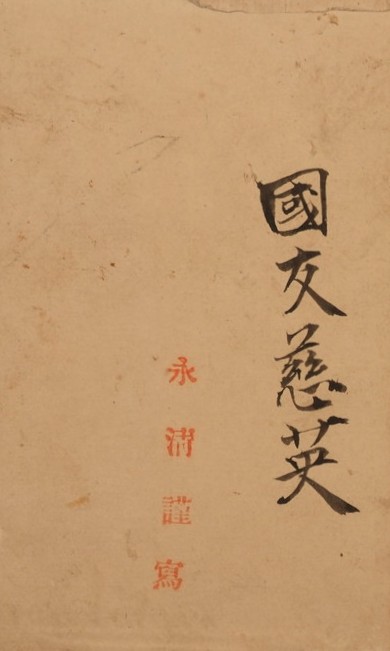 國友慈英
永沛謹寫